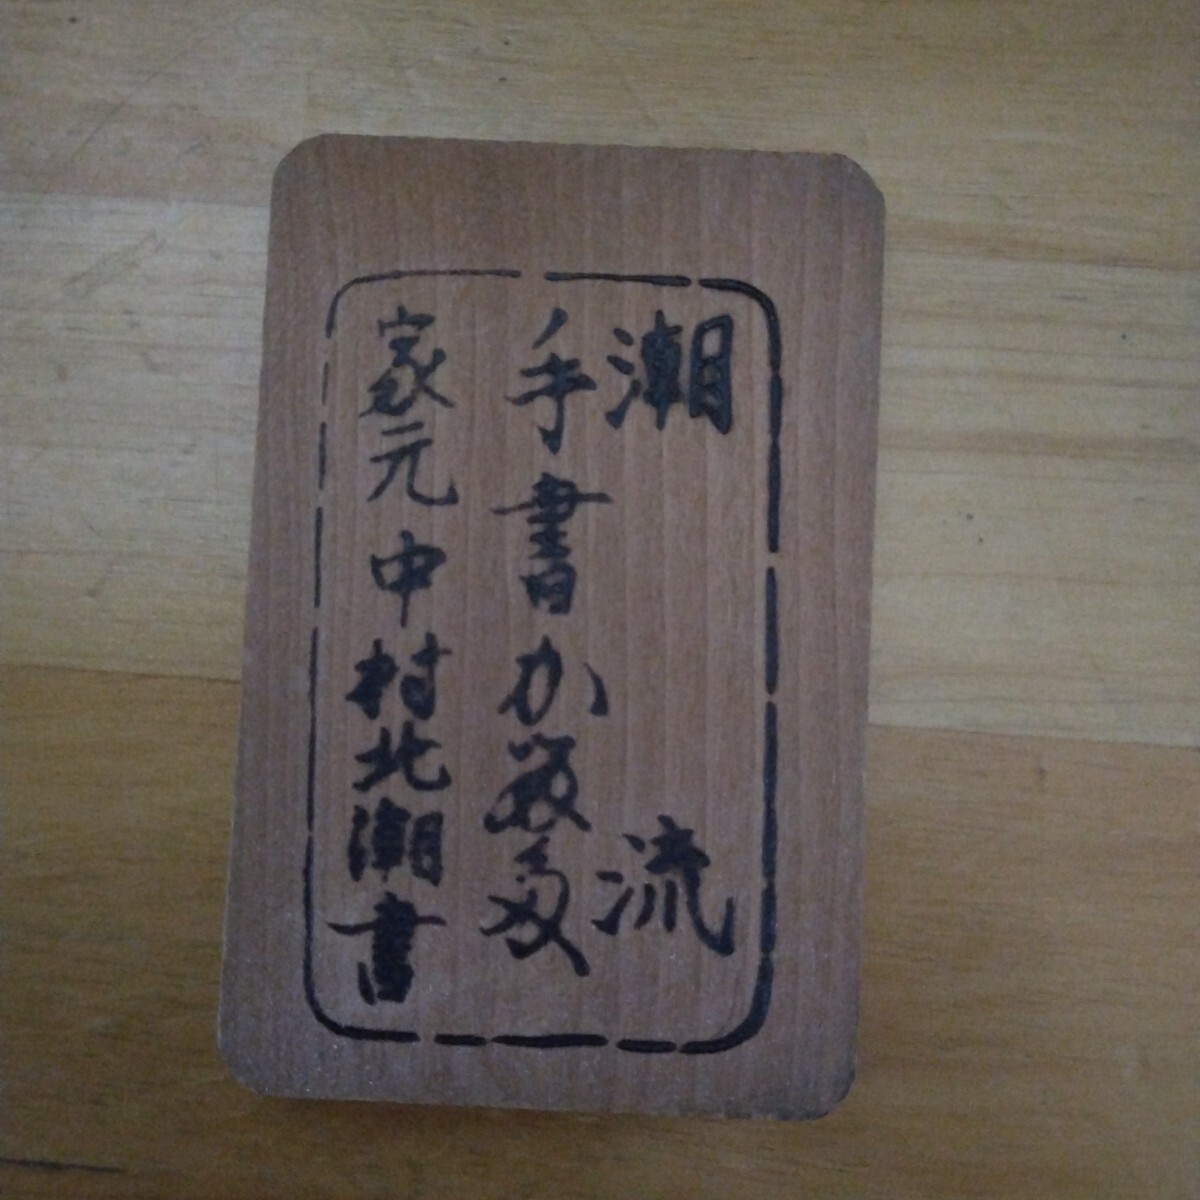 潮流
手書かるた
家元中村北潮書